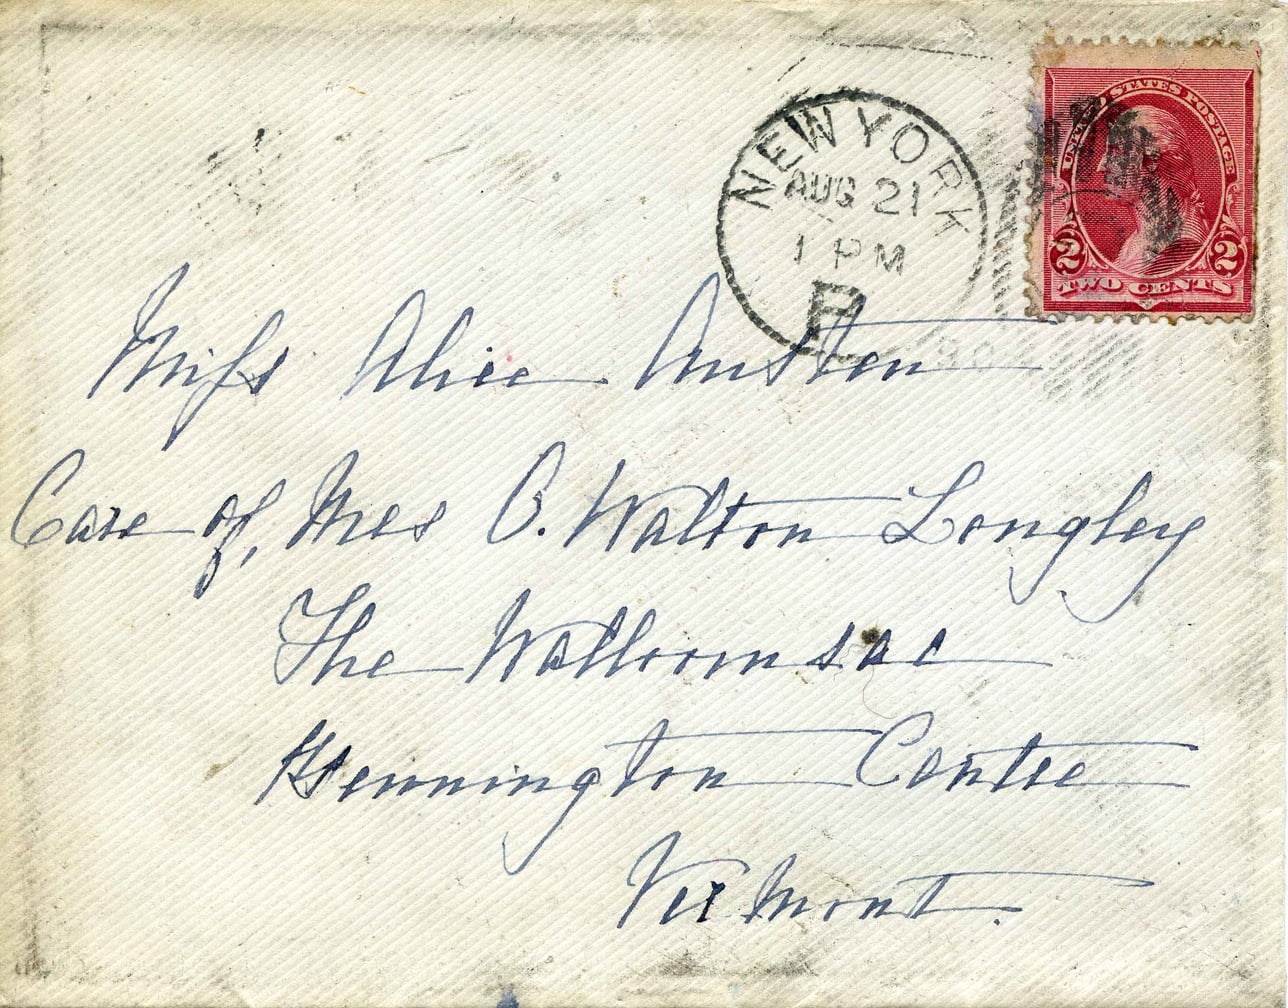 NEW YORK
AUG 21
1 PM
P
UNITED STATES POSTAGE
2 2
TWO CENTS
Miss Alice Austen
Care of, Mrs O. Walton Longley
The Walloomsac
Bennington Centre
Vermont.